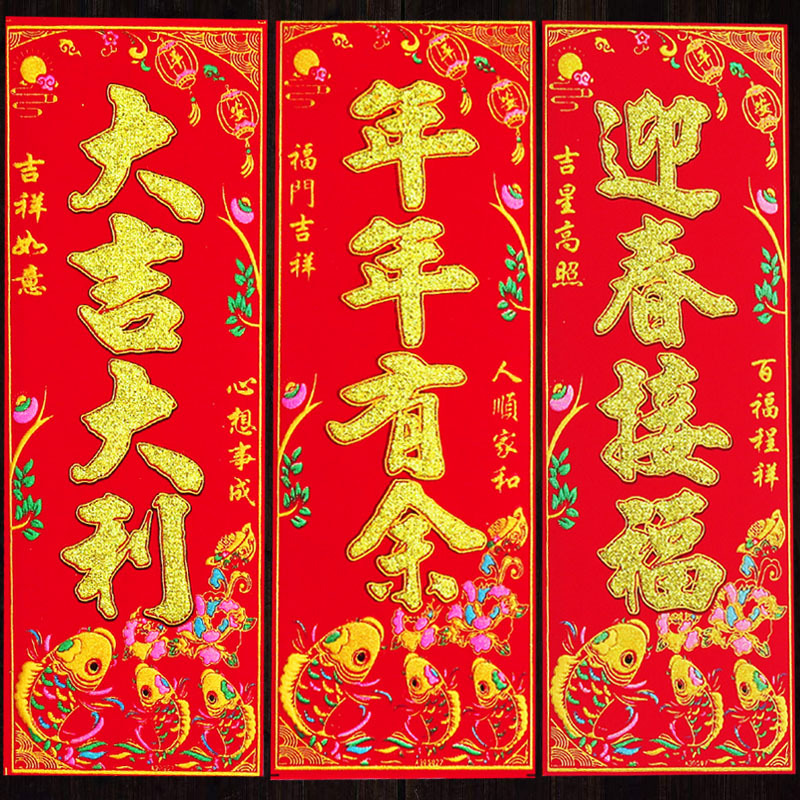 大吉大利
吉祥如意
心想事成
年年有余
福門吉祥
人順家和
迎春接福
吉星高照
百福程祥